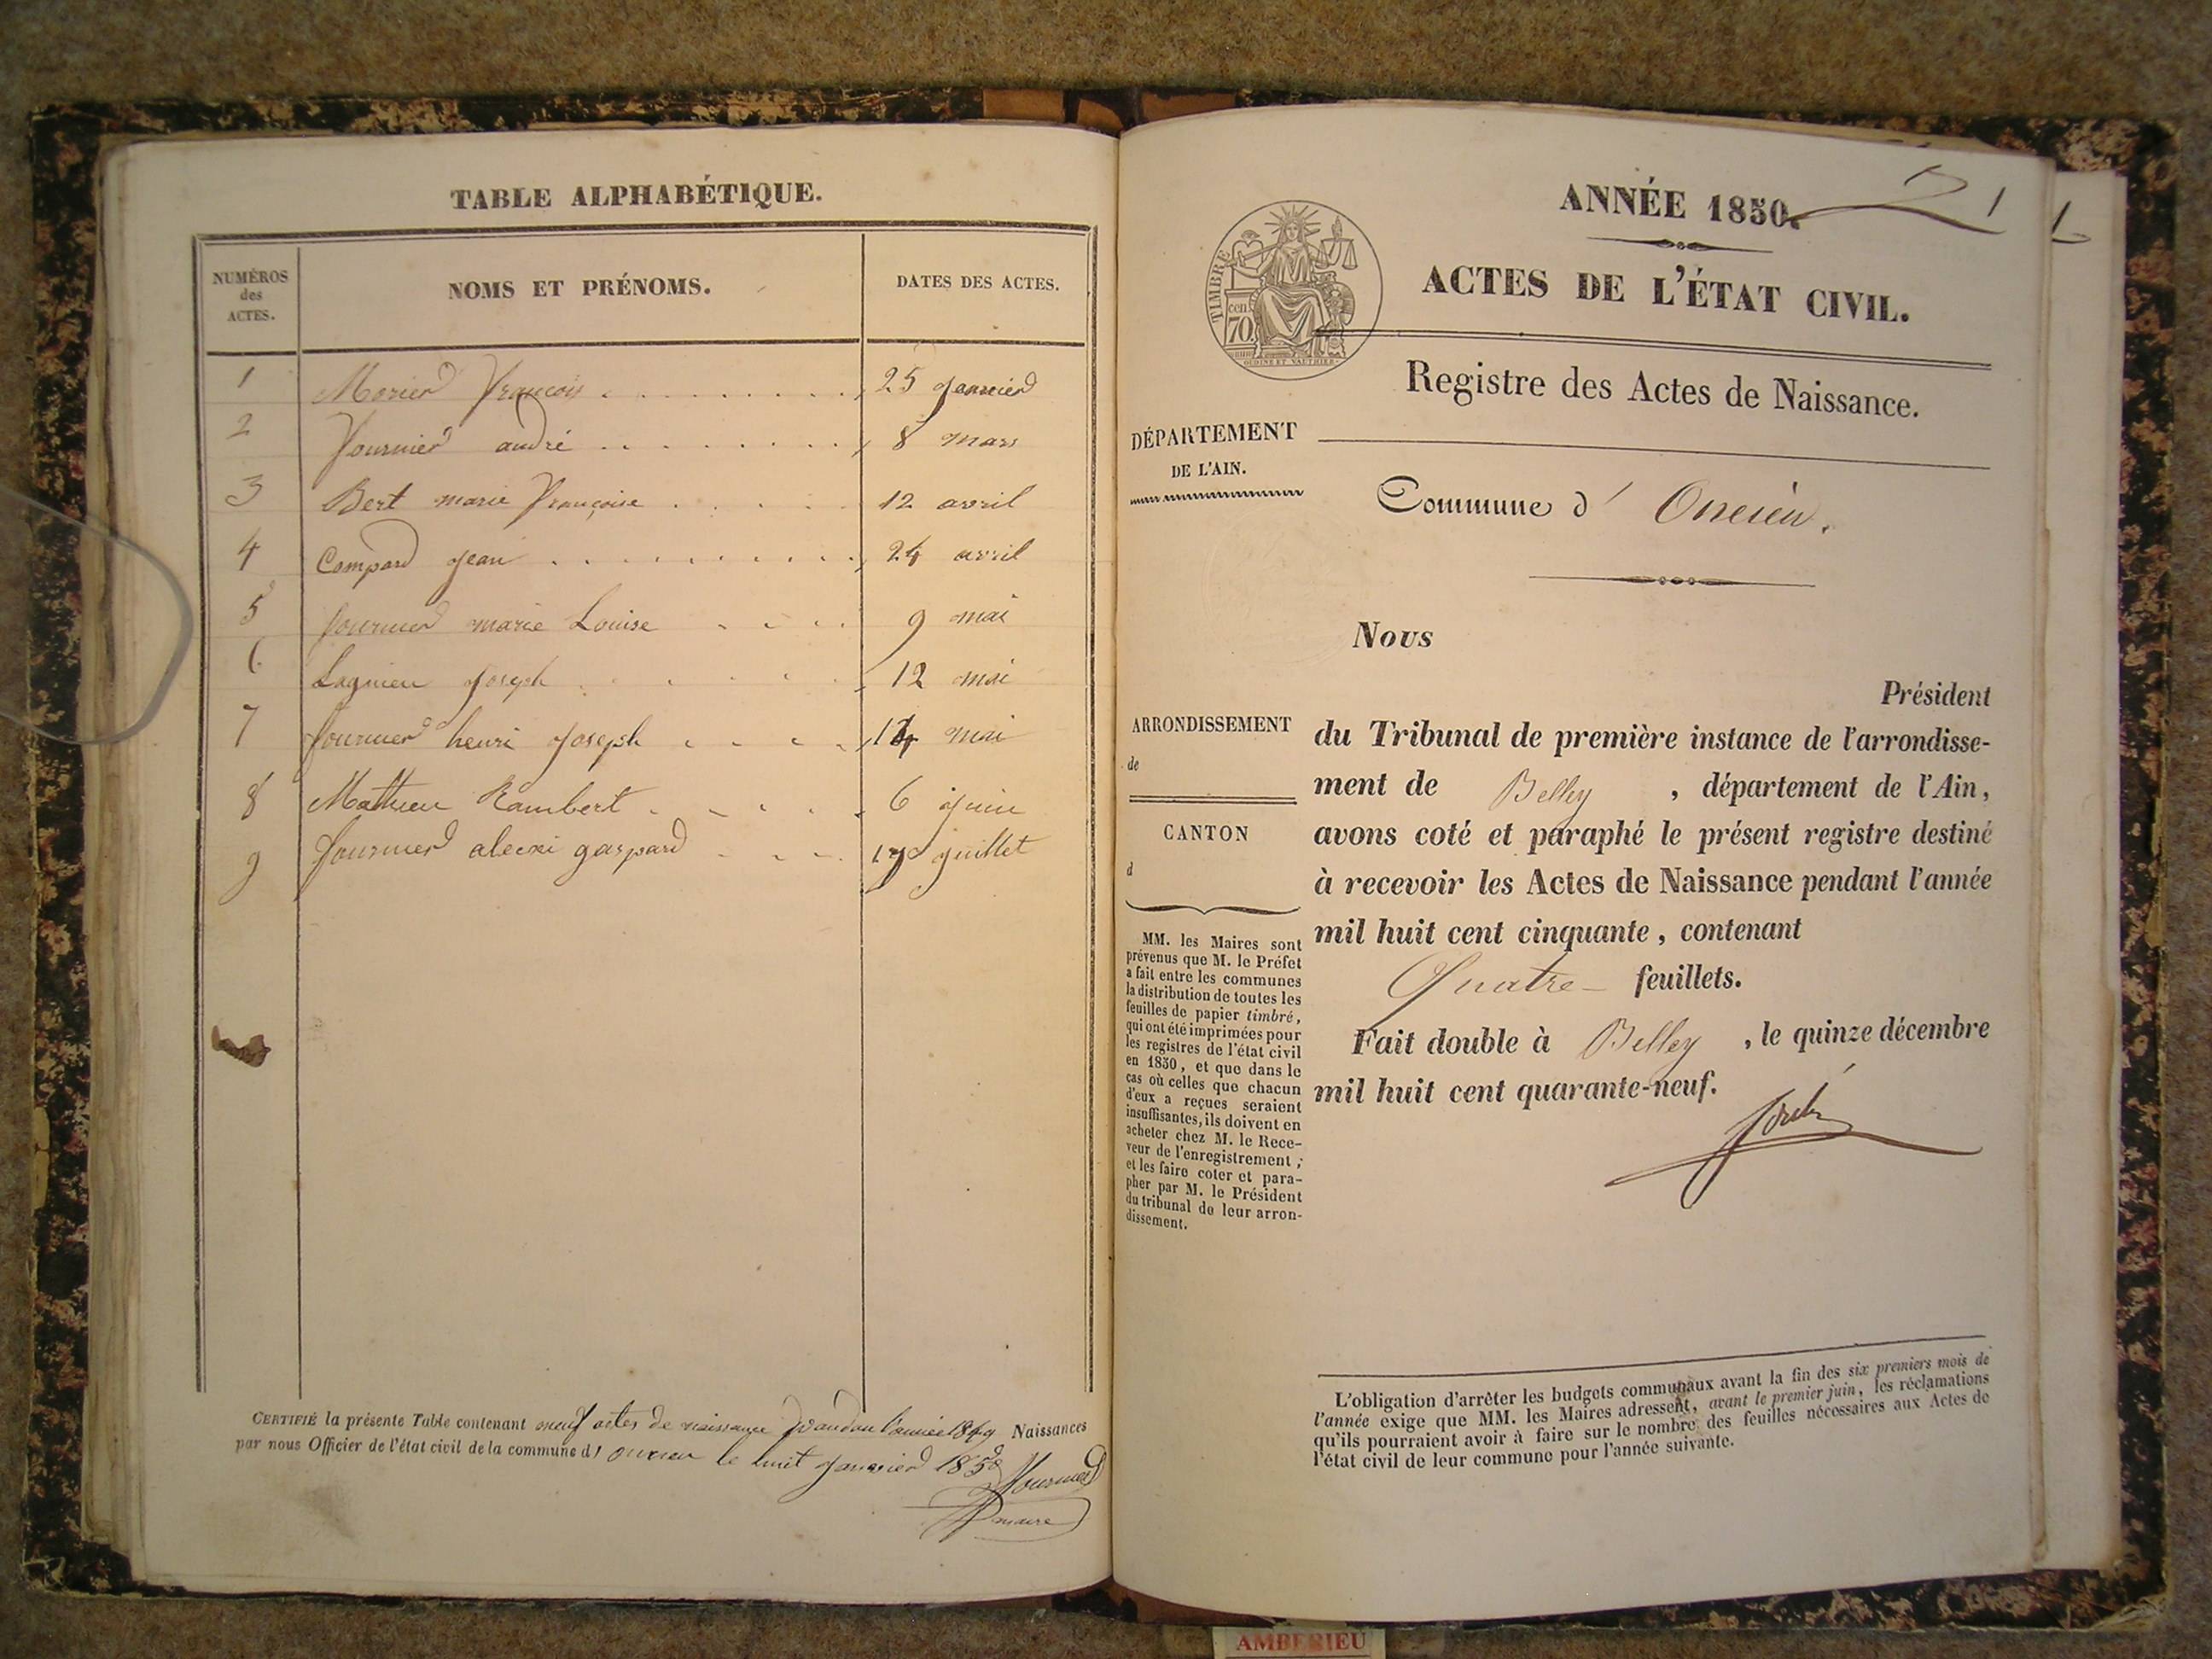 TABLE ALPHABÉTIQUE.
NUMÉROS
des
ACTES.
NOMS ET PRÉNOMS.
DATES DES ACTES.
1 Morier François 25 Janvier
2 Fournier andré 8 mars
3 Bert marie Françoise 12 avril
4 Compard Jean 24 avril
5 fournier marie Louise 9 mai
6 Lagnieu Joseph 12 mai
7 fournier henri Joseph 14 mai
8 Mathieu Rambert 6 juin
9 fournier alexi gaspard juillet
CERTIFIÉ la présente Table contenant neuf actes de naissance pandan l'année 1849 Naissances
par nous Officier de l'état civil de la commune d' oncieu le huit Janvier 1850
Fournier
maire
ANNÉE 1850.
TIMBRE
cen.
70.
OUDINÉ ET VAUTHIER
ACTES DE L'ÉTAT CIVIL.
Registre des Actes de Naissance.
DÉPARTEMENT
DE L'AIN.
Commune d' Oncieu.
Nous
Président
ARRONDISSEMENT
de
CANTON
d
du Tribunal de première instance de l'arrondisse-
ment de Belley , département de l'Ain,
avons coté et paraphé le présent registre destiné
à recevoir les Actes de Naissance pendant l'année
mil huit cent cinquante, contenant
Quatre feuillets.
Fait double à Belley , le quinze décembre
mil huit cent quarante-neuf.
MM. les Maires sont
prévenus que M. le Préfet
a fait entre les communes
la distribution de toutes les
feuilles de papier timbré,
qui ont été imprimées pour
les registres de l'état civil
en 1850, et que dans le
cas où celles que chacun
d'eux a reçues seraient
insuffisantes, ils doivent en
acheter chez M. le Rece-
veur de l'enregistrement ;
et les faire coter et para-
pher par M. le Président
du tribunal de leur arron-
dissement.
L'obligation d'arrêter les budgets communaux avant la fin des six premiers mois de
l'année exige que MM. les Maires adressent, avant le premier juin, les réclamations
qu'ils pourraient avoir à faire sur le nombre des feuilles nécessaires aux Actes de
l'état civil de leur commune pour l'année suivante.
AMBERIEU